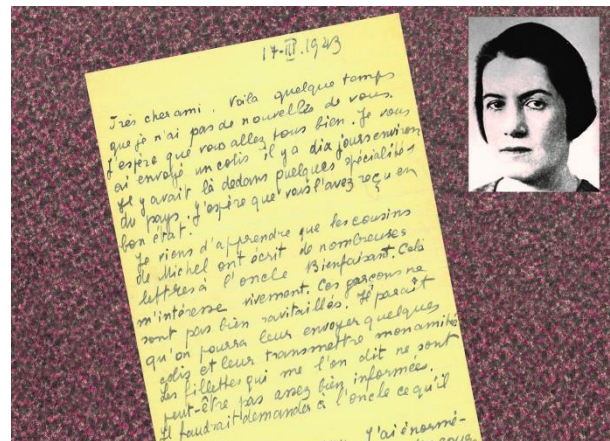 17-III.1943
Très cher ami. Voilà quelque temps
que je n'ai pas de nouvelles de vous.
J'espère que vous allez tous bien. Je vous
ai envoyé un colis il y a dix jours environ
Il y avait là dedans quelques spécialités
du pays. J'espère que vous l'avez reçu en
bon état.
Je viens d'apprendre que les cousins
de Michel ont écrit de nombreuses
lettres à l'oncle Bienfaisant. Celà
m'intéresse vivement. Ces garçons ne
sont pas bien ravitaillés. Il paraît
qu'on pourra leur envoyer quelques
colis et leur transmettre mon amitié
Les fillettes qui me l'on dit ne sont
peut-être pas assez bien informées.
Il faudrait demander à l'oncle ce qu'il
J'ai énormé-